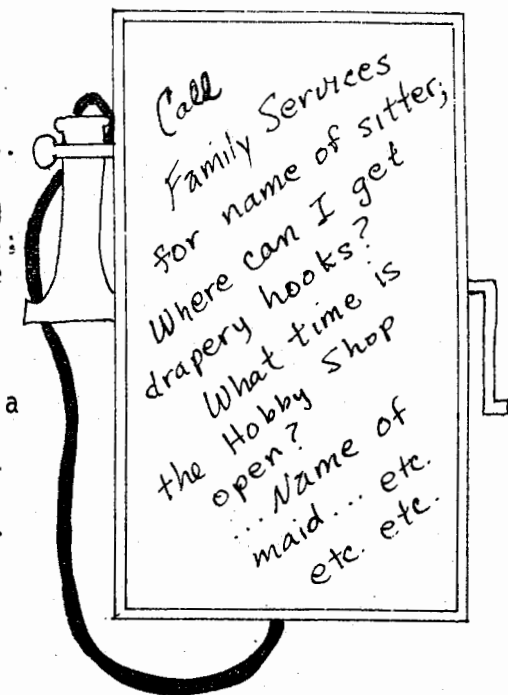 Call
Family Services
for name of sitter;
Where can I get
drapery hooks?
What time is
the Hobby Shop
open?
... Name of
maid... etc.
etc. etc.
a